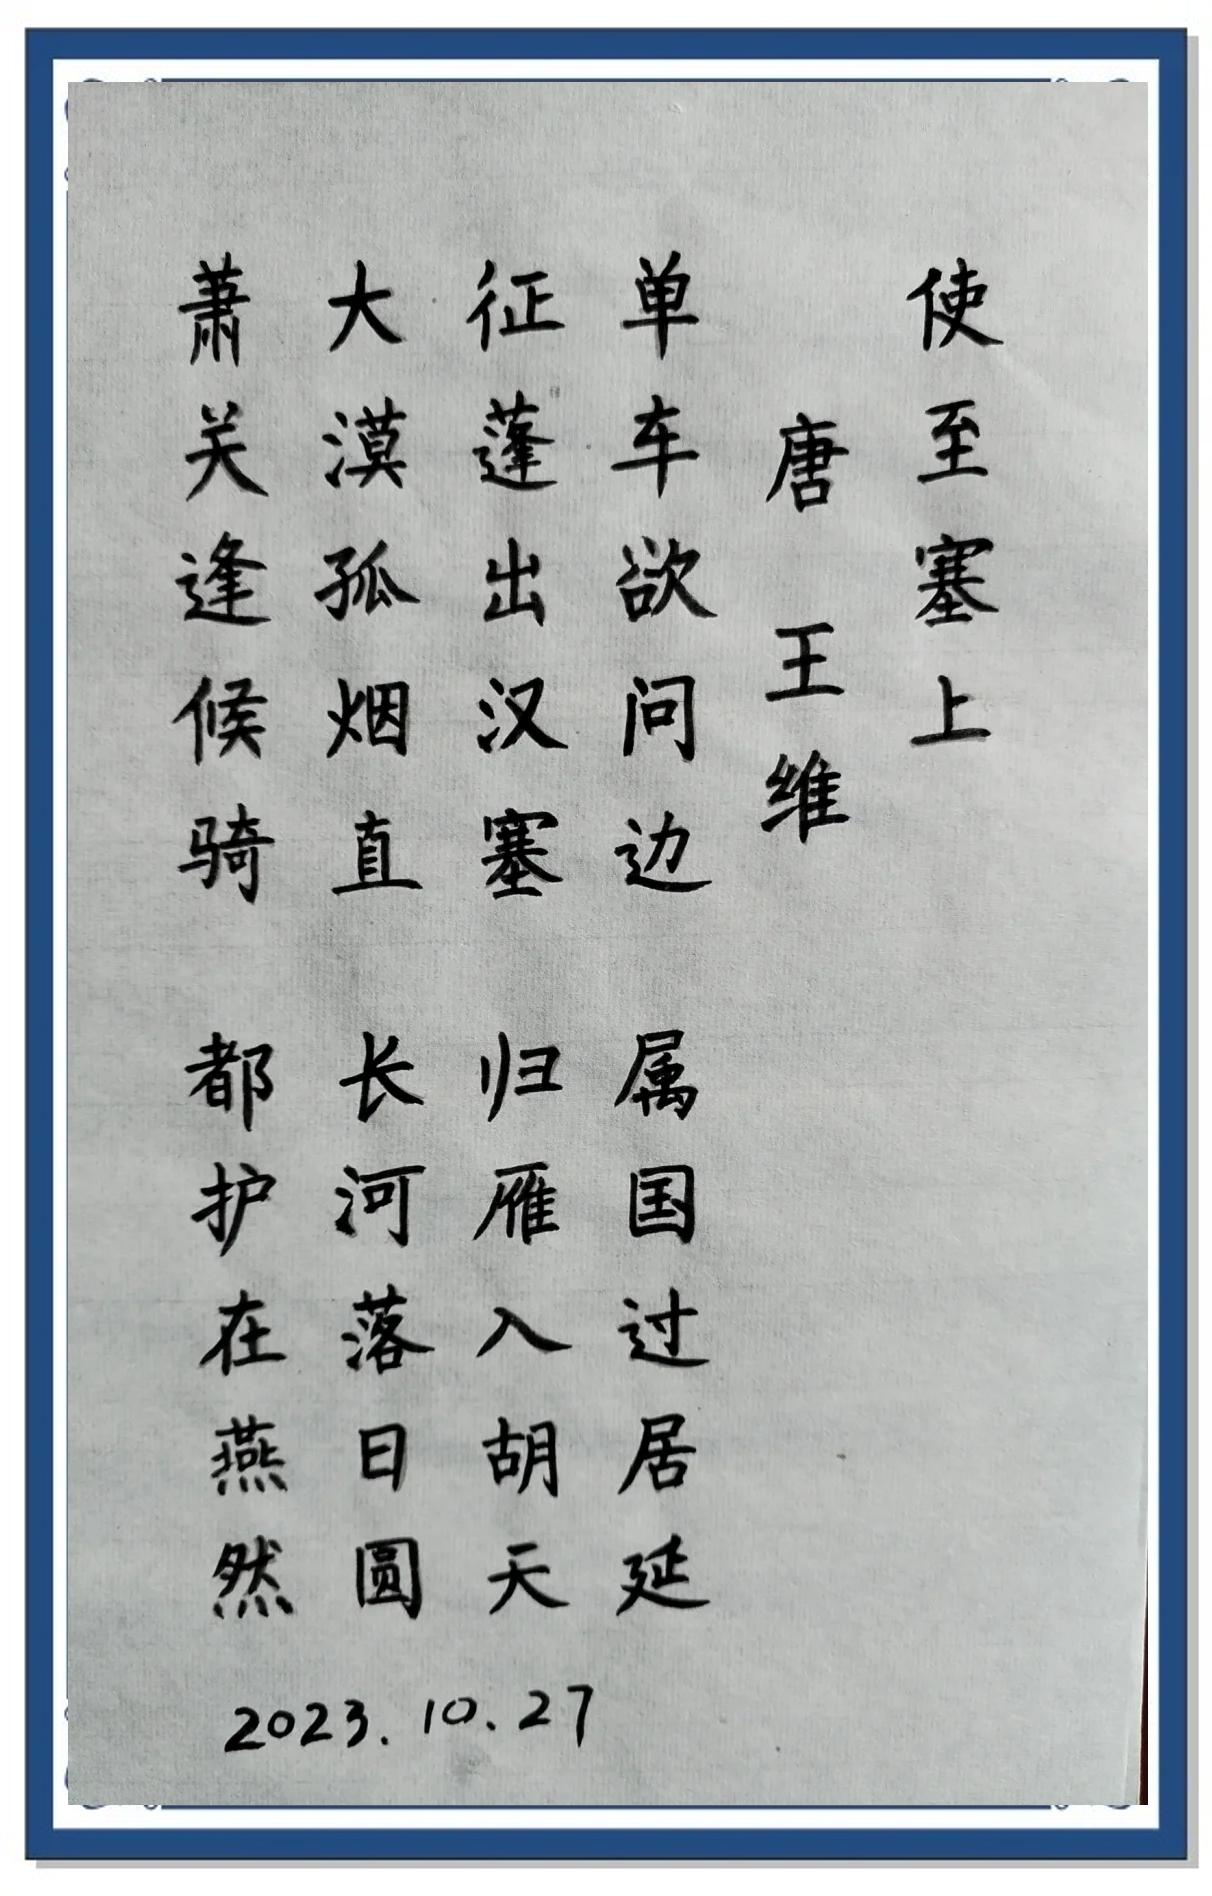 使至塞上
唐 王维
单车欲问边 属国过居延
征蓬出汉塞 归雁入胡天
大漠孤烟直 长河落日圆
萧关逢候骑 都护在燕然
2023.10.27